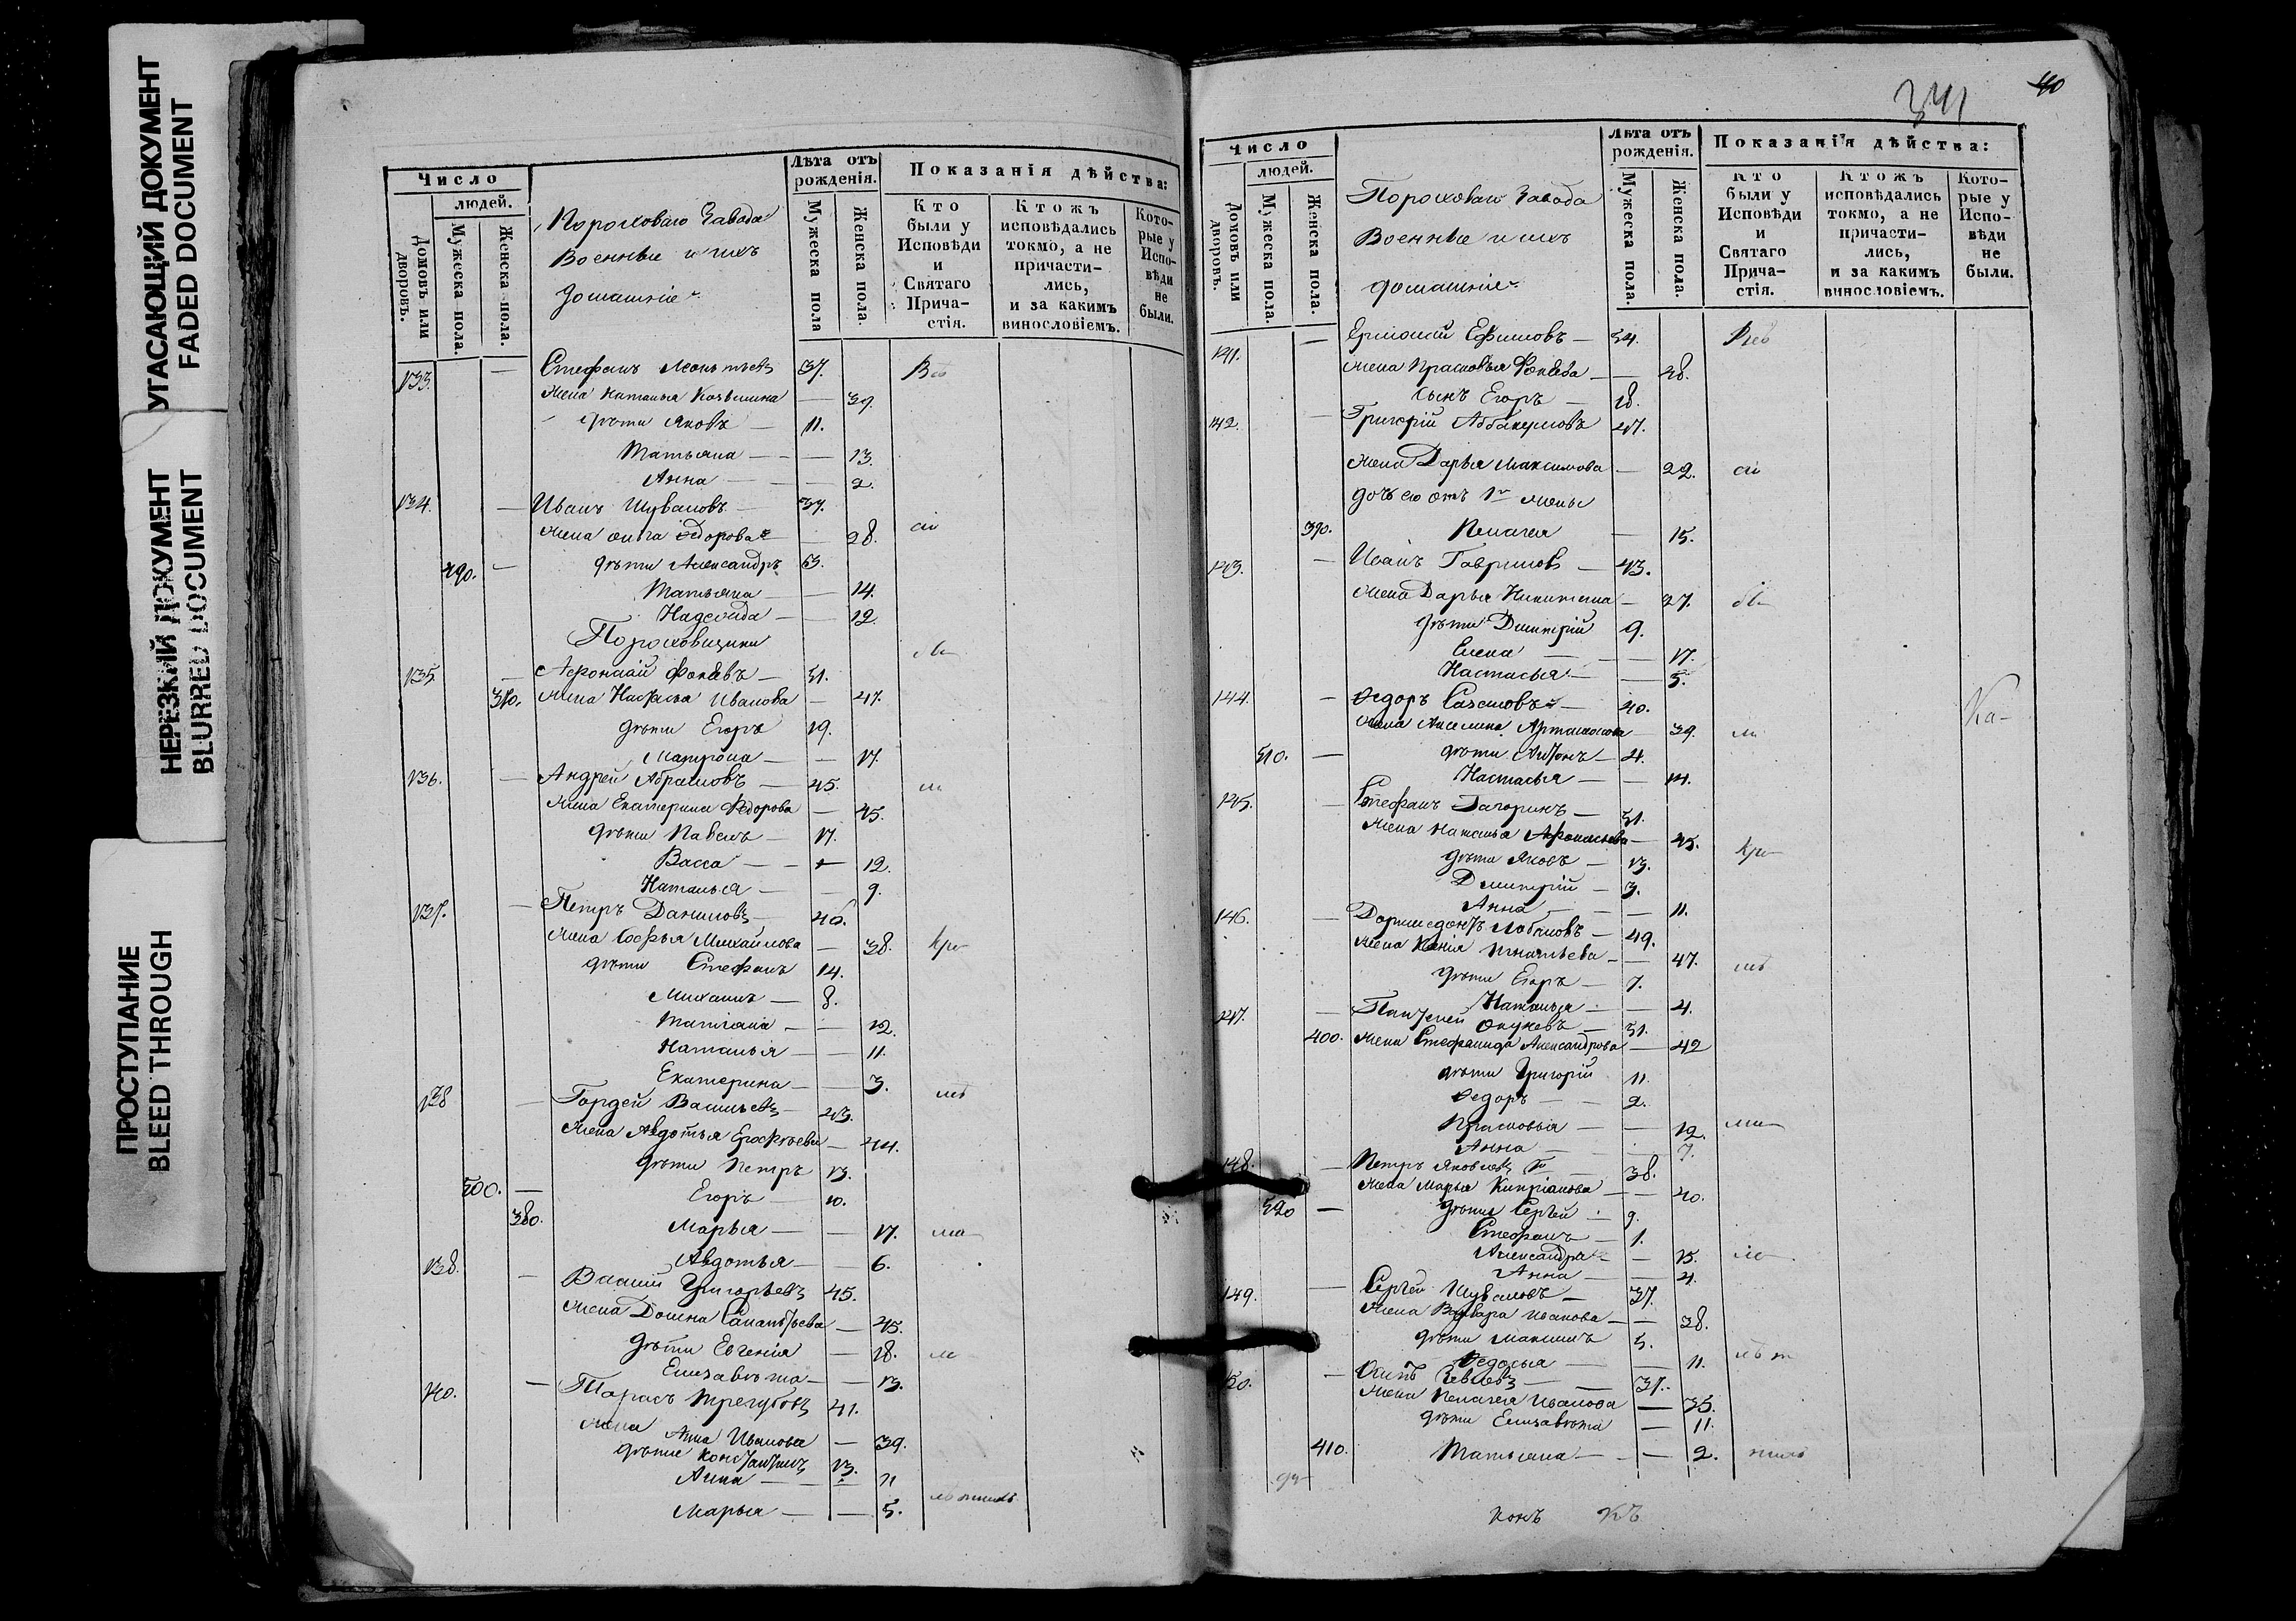 УГАСАЮЩИЙ ДОКУМЕНТ
FADED DOCUMENT
НЕРЕЗКИЙ ДОКУМЕНТ
BLURRED DOCUMENT
ПРОСТУПАНИЕ
BLEED THROUGH
Число
людей.
Домовъ или дворовъ.
Мужеска пола.
Женска пола.
Пороховаго Завода
Военные и ихъ
домашніе
Лѣта отъ рожденія.
Мужеска пола
Женска пола.
Показанія дѣйства:
Кто были у Исповѣди и Святаго Прича-стія.
Ктожъ исповѣдались токмо, а не причасти-лись, и за какимъ винословіемъ.
Кото-рые у Испо-вѣди не были.
133. — Стефанъ Леонтьевъ 37.
жена Наталья Козьмина — 39.
дѣти Яковъ — 11.
Татьяна — — 13.
Анна — — 2.
134. — Иванъ Шуваловъ — 37.
жена Ольга Ѳедорова — 28.
490. — дѣти Александръ
Татьяна — — 14.
Надежда — — 12.
Пороховщики
135 — Афонасій Фокѣевъ — 51.
жена Настасья Иванова — 47.
дѣти Егоръ 19.
Матрона — — 17.
136. — Андрей Абрамовъ — 45.
жена Екатерина Ѳедорова — 45.
дѣти Павелъ — 17.
Васса — — 12.
Наталья — — 9.
137. — Петръ Даниловъ — 46.
жена Софья Михайлова — 38.
дѣти Стефанъ 14.
Михаилъ — 8.
Татіана — — 12.
Наталья — — 11.
Екатерина — 3.
138 — Гордей Васильевъ — 43.
жена Авдотья — 44.
дѣти Петръ 13.
500. — Егоръ — 10.
380. Марья — — 17.
Авдотья — — 6.
138. — Василій Григорьевъ 45.
жена Домна — 45.
дѣти Евгенія — 18.
Елизавѣта — — 13.
140. — Тарасъ Трегубовъ 41.
жена Анна Иванова — 39.
дѣти Константинъ 13.
Анна — — 11
Марья — — 5.
341
40
Число
людей.
Домовъ или дворовъ.
Мужеска пола.
Женска пола.
Пороховаго Завода
Военные и ихъ
домашніе
Лѣта отъ рожденія.
Мужеска пола.
Женска пола.
Показанія дѣйства:
Кто были у Исповѣди и Святаго Прича-стія.
Ктожъ исповѣдались токмо, а не причасти-лись, и за какимъ винословіемъ.
Кото-рые у Испо-вѣди не были.
141. — Ермолай Ефимовъ — 54.
жена Прасковья Фокѣева — 48.
сынъ Егоръ — 18.
142. — Григорій Аббакумовъ 47.
жена Дарья Максимова — 22.
дочь его отъ 1й жены
390. Пелагея — 15.
143. — Иванъ Гавриловъ — 43.
жена Дарья Никитина — 27.
дѣти Димитрій 9.
Елена — — 17.
Настасья — — 5.
144. — Ѳедоръ — 40.
жена — 39.
510. — дѣти Антонъ — 4.
Настасья — — 14.
145. — Стефанъ Гагоринъ — 51.
жена Наталья Афонасьева — 45.
дѣти Яковъ — 13.
Димитрій — 3.
Анна — — 11.
146. — Доримедонтъ Лобановъ — 49.
жена Ксенія Игнатьева — 47.
дѣти Егоръ — 7.
Наталья — — 4.
147. — Пантелей Окуневъ — 51.
400. жена Стефанида Александрова — 42
дѣти Григорій 11.
Ѳедоръ — — 2.
Прасковья — — 12.
Анна — — 7.
148. — Петръ Яковлевъ 38.
жена Марья Кипріанова — — 40.
520 — дѣти Сергѣй — 9.
Стефанъ — 1.
Александра — — 15.
Анна — — 4.
149. — Сергѣй Шуваловъ — 37.
жена Варвара Иванова — — 38.
дѣти Максимъ 5.
Ѳедосья — — 11.
150. — Осипъ — 37.
жена Пелагея Иванова — 35.
дѣти Елизавѣта — 11.
410. Татьяна — — 2.